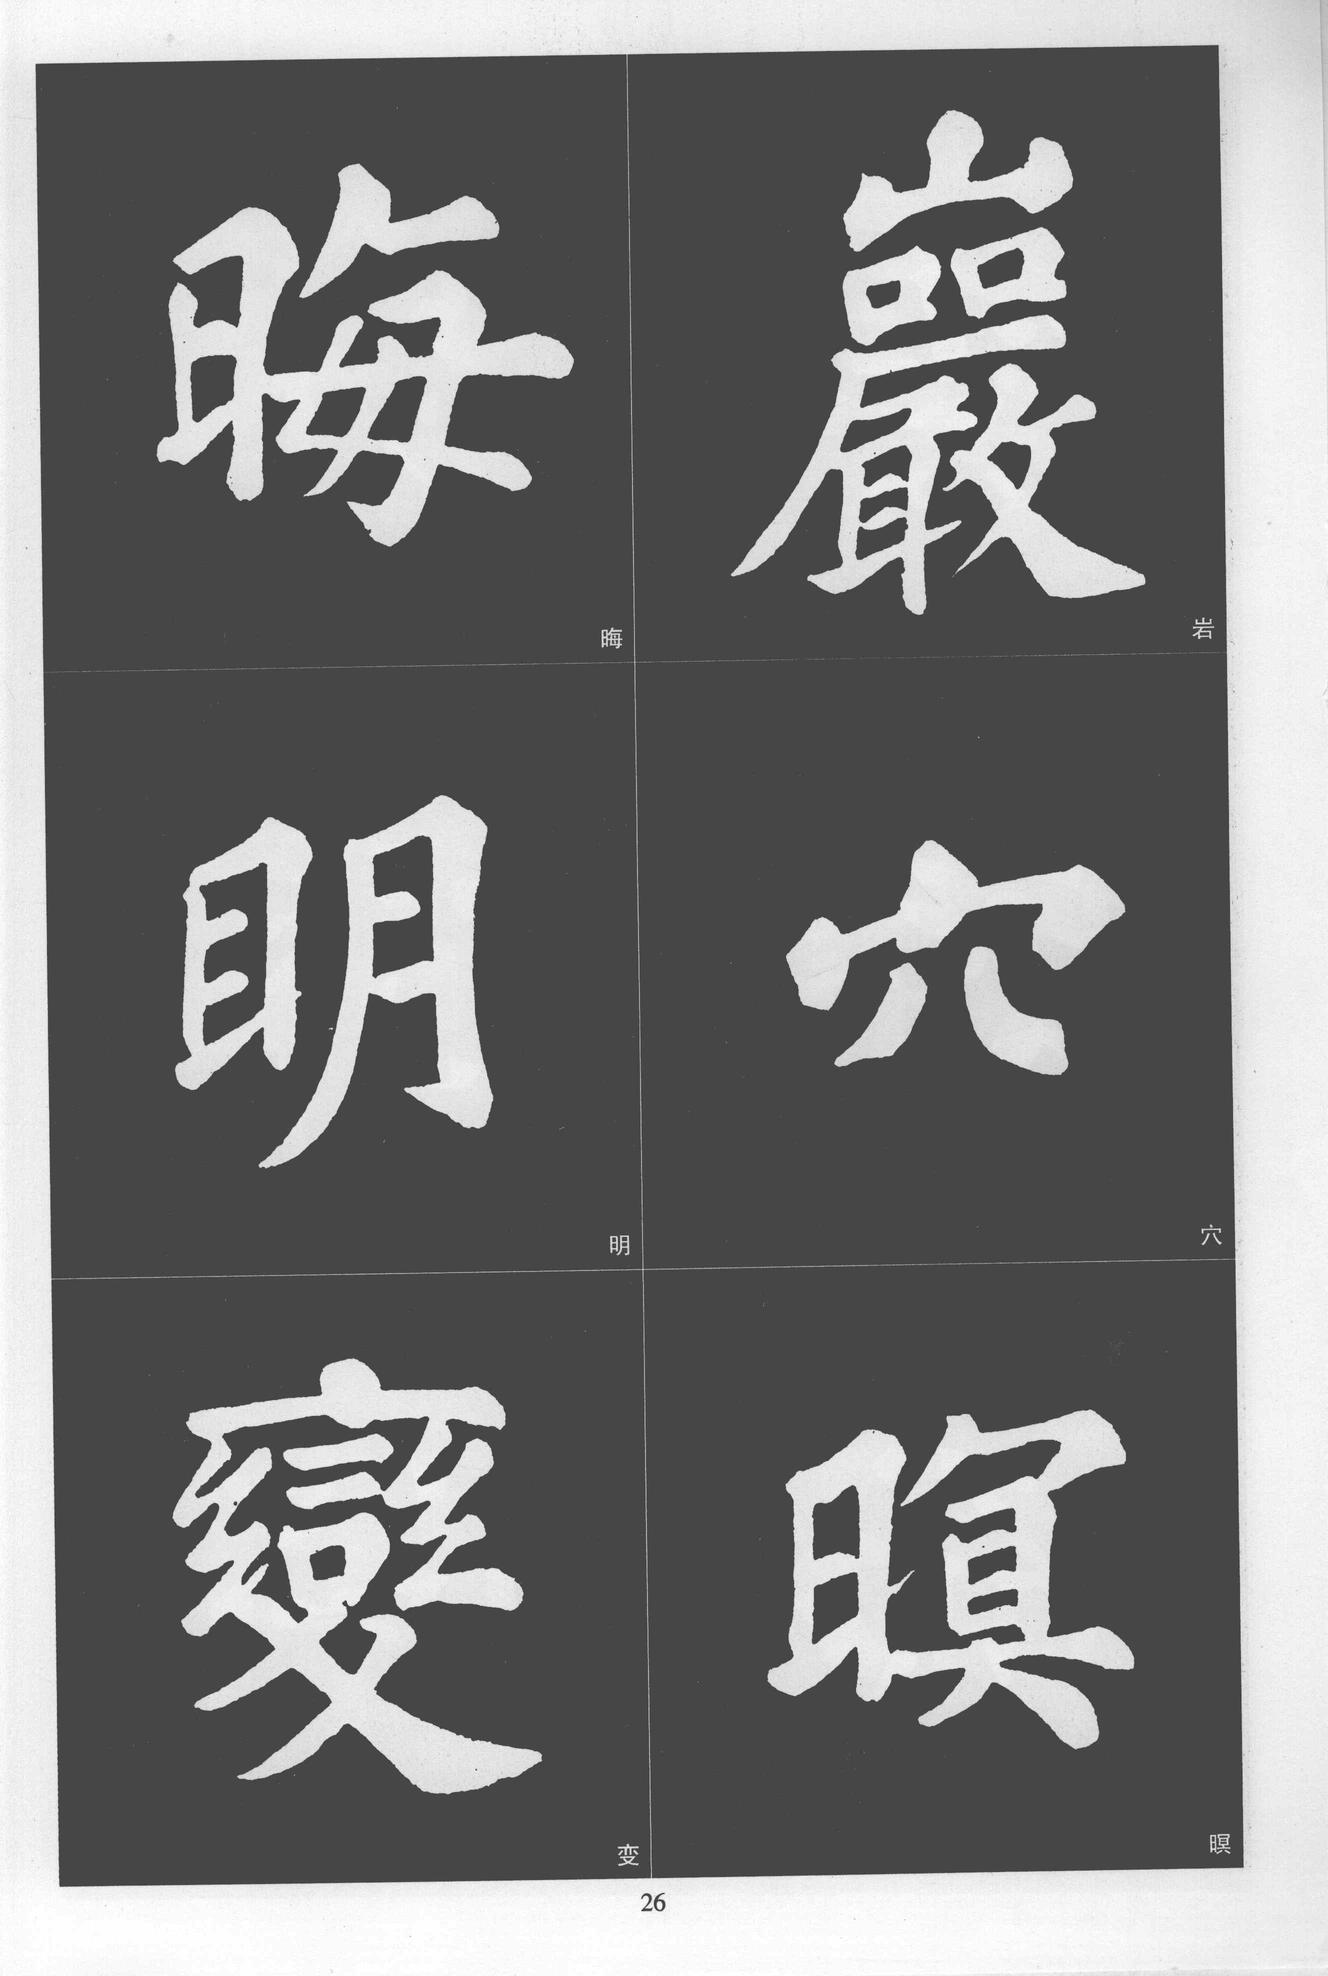 巖
岩
穴
穴
暝
暝
晦
晦
明
明
變
变
26